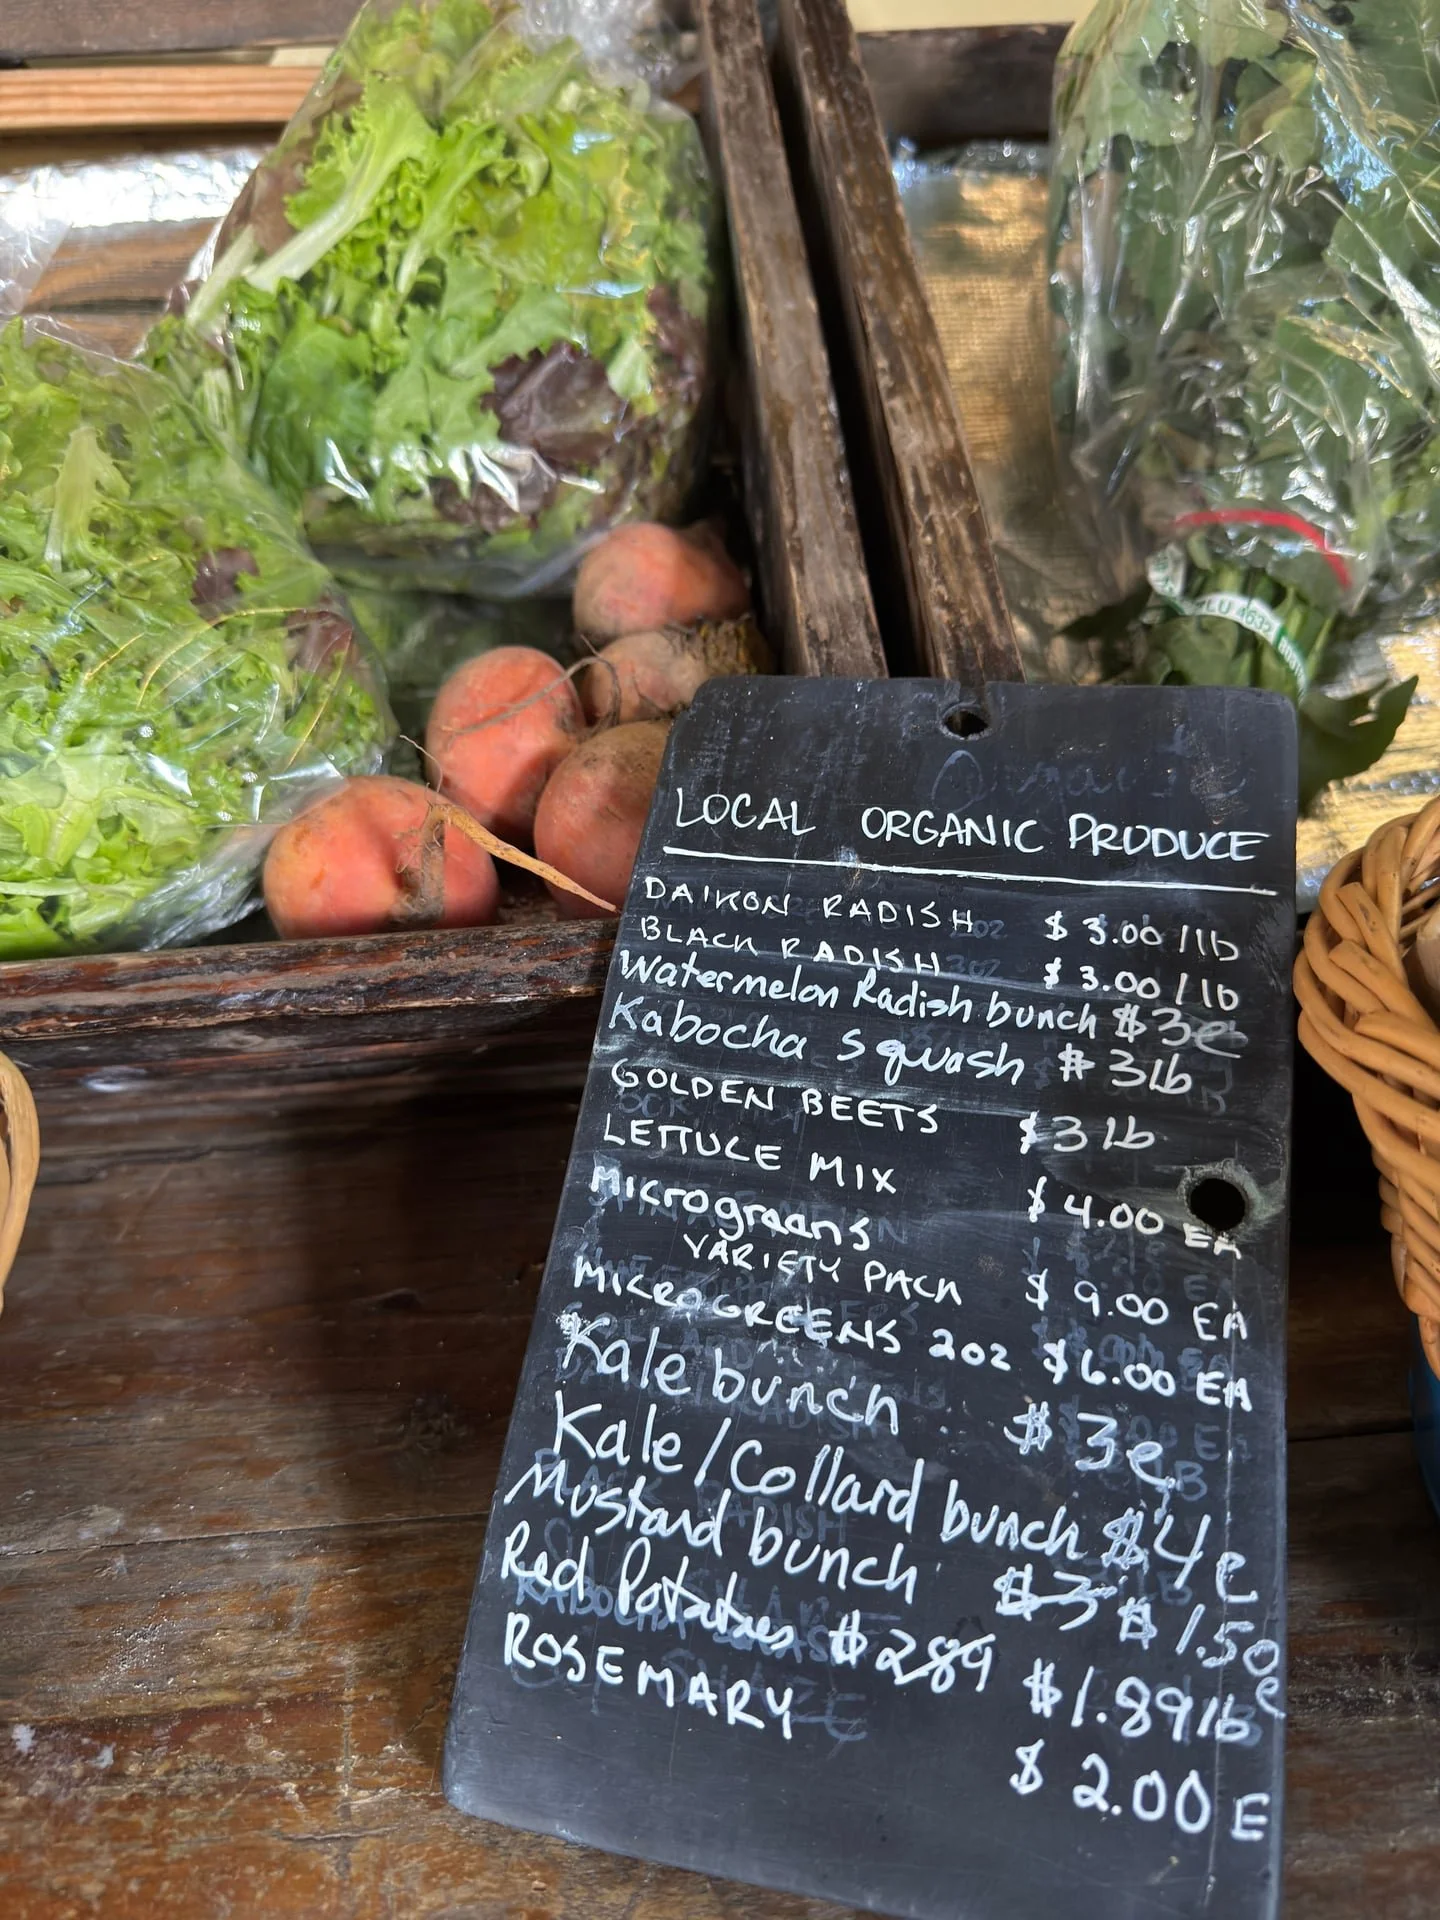 PLU 4632
LOCAL ORGANIC PRODUCE
DAIKON RADISH $3.00/lb
BLACK RADISH $3.00/lb
Watermelon Radish bunch $3e
Kabocha squash $3lb
GOLDEN BEETS $3lb
LETTUCE MIX $4.00 EA
Microgreens
VARIETY PACK $9.00 EA
MICROGREENS 2oz $6.00 EA
Kale bunch $3e
Kale/Collard bunch $4e
Mustard bunch $3 $1.50e
Red Potatoes $289 $1.89lb
ROSEMARY $2.00 E